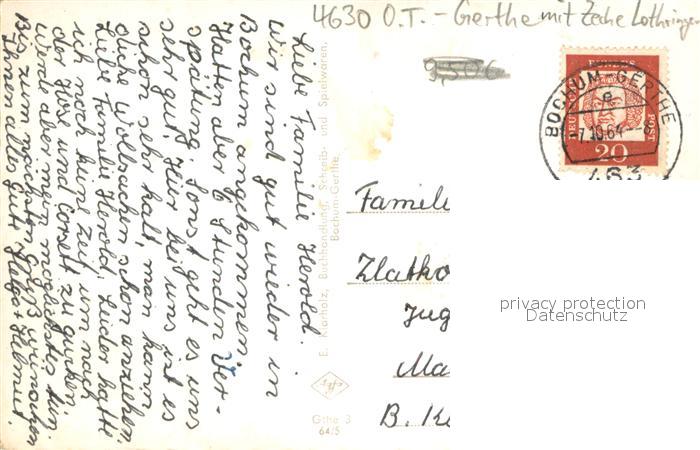 4630 O.T. - Gerthe mit Zeche Lothringen
9,50
Liebe Familie Herold.
Wir sind gut wieder in
Bochum angekommen.
Hatten aber 6 Stunden Ver-
spätung. Sonst geht es uns
sehr gut. Hier bei uns ist es
schon sehr kalt, man kann
dicke Wollsachen schon anziehen.
Liebe Familie Herold. Leider hatte
ich noch keine Zeit um nach
der Hose und Corsett zu gucken.
Werde aber mein möglichstes tun.
Bis zum nächsten Gruß wünschen
Ihnen alles Gute Helga + Helmut.
E. Klarholz, Buchhandlung, Schreib- und Spielwaren,
Bochum-Gerthe
Gthe 3
64/5
DEUTSCHE BUNDESPOST
20
BOCHUM-GERTHE
e
-7.10.64
463
Famili
Zlatko
Jug
Ma
B. K
privacy protection
Datenschutz